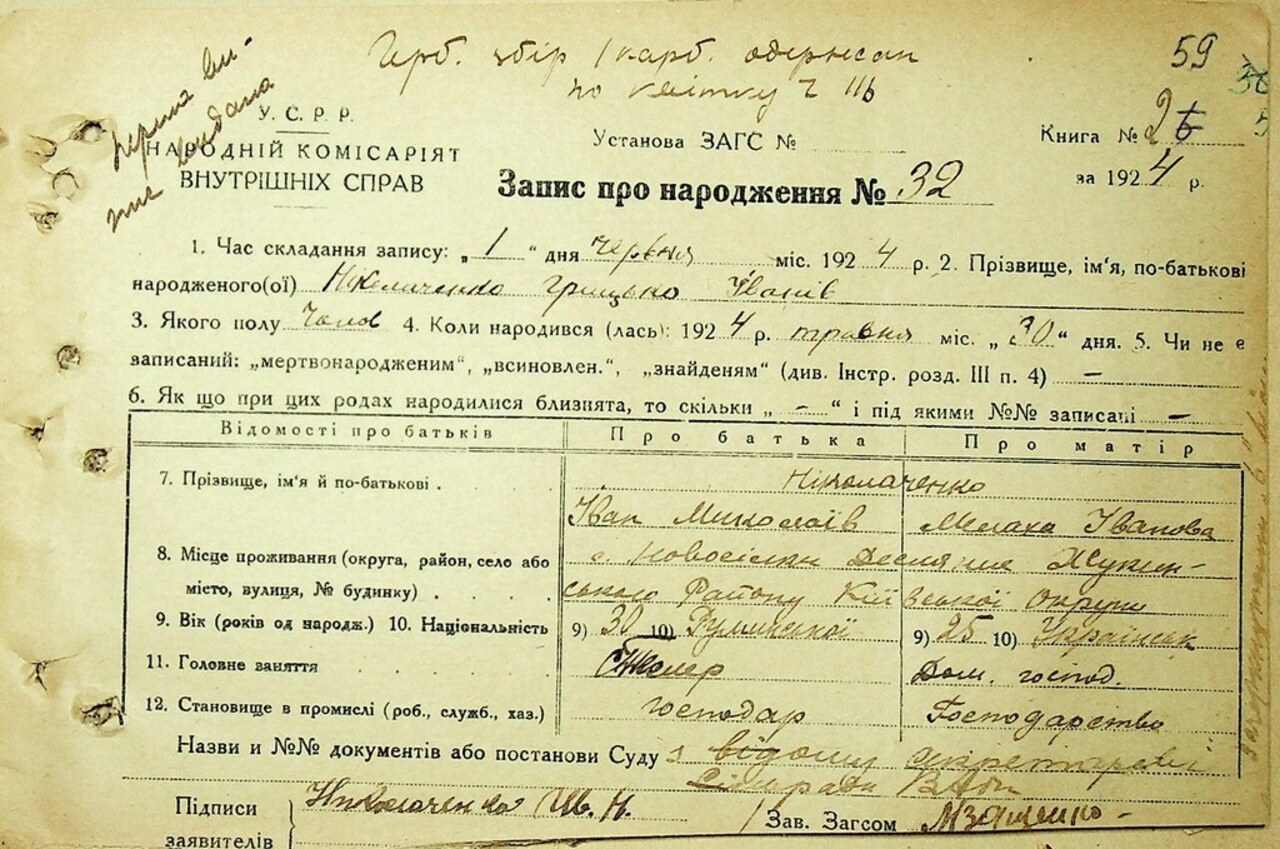 Герб. збір 1 карб. одержан
по квітку Ч
59
У. С. Р. Р.
НАРОДНІЙ КОМІСАРІЯТ
ВНУТРІШНІХ СПРАВ
Установа ЗАГС №
Книга № 2
за 1924 р.
Запис про народження № 32
1. Час складання запису: „1“ дня червня міс. 1924 р. 2. Прізвище, ім'я, по-батькові
народженого(ої) Ніколаченко Грицько Іванів
3. Якого полу Чолов 4. Коли народився (лась): 1924 р. травня міс. „30“ дня. 5. Чи не є
записаний: „мертвонародженим“, „всиновлен.“, „знайденям“ (див. Інстр. розд. III п. 4) —
6. Як що при цих родах народилися близнята, то скільки „ — “ і під якими №№ записані —
Відомості про батьків Про батька Про матір
7. Прізвище, ім'я й по-батькові . Ніколаченко
Іван Миколаїв Мелаха Іванова
8. Місце проживання (округа, район, село або с. Новосілки
місто, вулиця, № будинку) . . . . ського Району Київської Округи
9. Вік (років од народж.) 10. Національність 9) 30 10) Руминської 9) 25 10) Українськ
11. Головне заняття Столер Дом. господ.
12. Становище в промислі (роб., служб., хаз.) господар Господарство
Назви и №№ документів або постанови Суду з відому секретаря
Сільради
Підписи Николаченко Ив. Н.
заявителів
Зав. Загсом